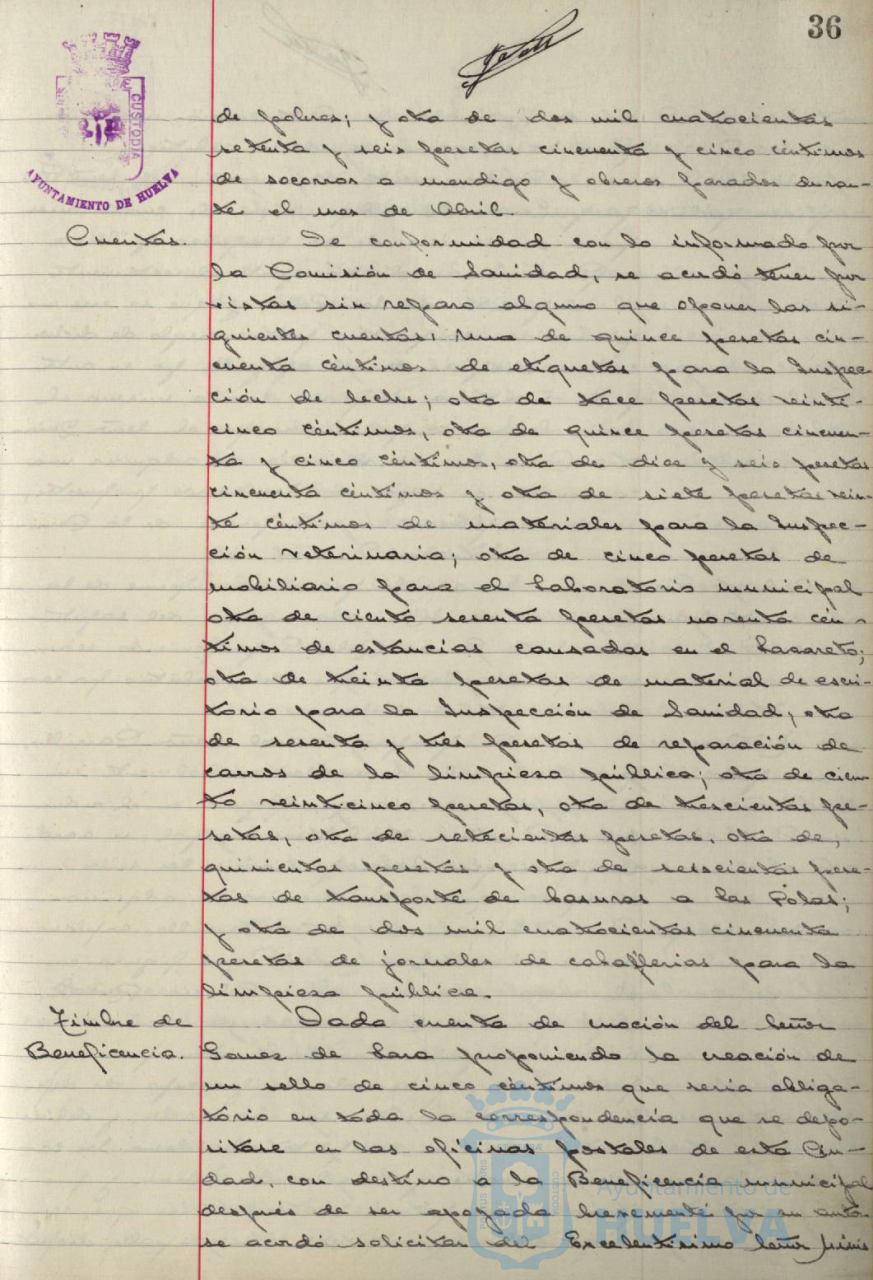 36
CUSTODIA
AYUNTAMIENTO DE HUELVA
de pobres; y otra de dos mil cuatrocientas
setenta y seis pesetas cincuenta y cinco céntimos
de socorros a mendigo y obreros parados duran-
te el mes de Abril.
Cuentas.
De conformidad con lo informado por
la Comisión de Sanidad, se acordó tener por
vistas sin reparo alguno que oponer las si-
guientes cuentas: Una de quince pesetas cin-
cuenta céntimos de etiquetas para la Inspec
ción de leche; otra de trece pesetas veinti-
cinco céntimos, otra de quince pesetas cincuen-
ta y cinco céntimos, otra de diez y seis pesetas
cincuenta céntimos y otra de siete pesetas vein-
te céntimos de materiales para la Inspec-
ción Veterinaria; otra de cinco pesetas de
mobiliario para el Laboratorio municipal
otra de ciento sesenta pesetas noventa cén-
timos de estancias causadas en el Lazareto;
otra de treinta pesetas de material de escri-
torio para la Inspección de Sanidad; otra
de sesenta y tres pesetas de reparación de
carros de la limpieza pública; otra de cien-
to veinticinco pesetas, otra de trescientas pe-
setas, otra de setecientas pesetas, otra de,
quinientas pesetas y otra de seiscientas pese-
tas de transporte de basuras a las Polas;
y otra de dos mil cuatrocientas cincuenta
pesetas de jornales de caballerias para la
limpieza pública.
Timbre de
Beneficencia.
Dada cuenta de moción del Señor
Gomez de Lara proponiendo la creación de
un sello de cinco céntimos que seria obliga-
tório en toda la correspondencia que se depo-
sitase en las oficinas postales de esta Ciu-
dad, con destino a la Beneficencia municipal
después de ser apoyada brevemente por su autor
se acordó solicitar del Excelentísimo Señor Minis
Ayuntamiento de
HUELVA